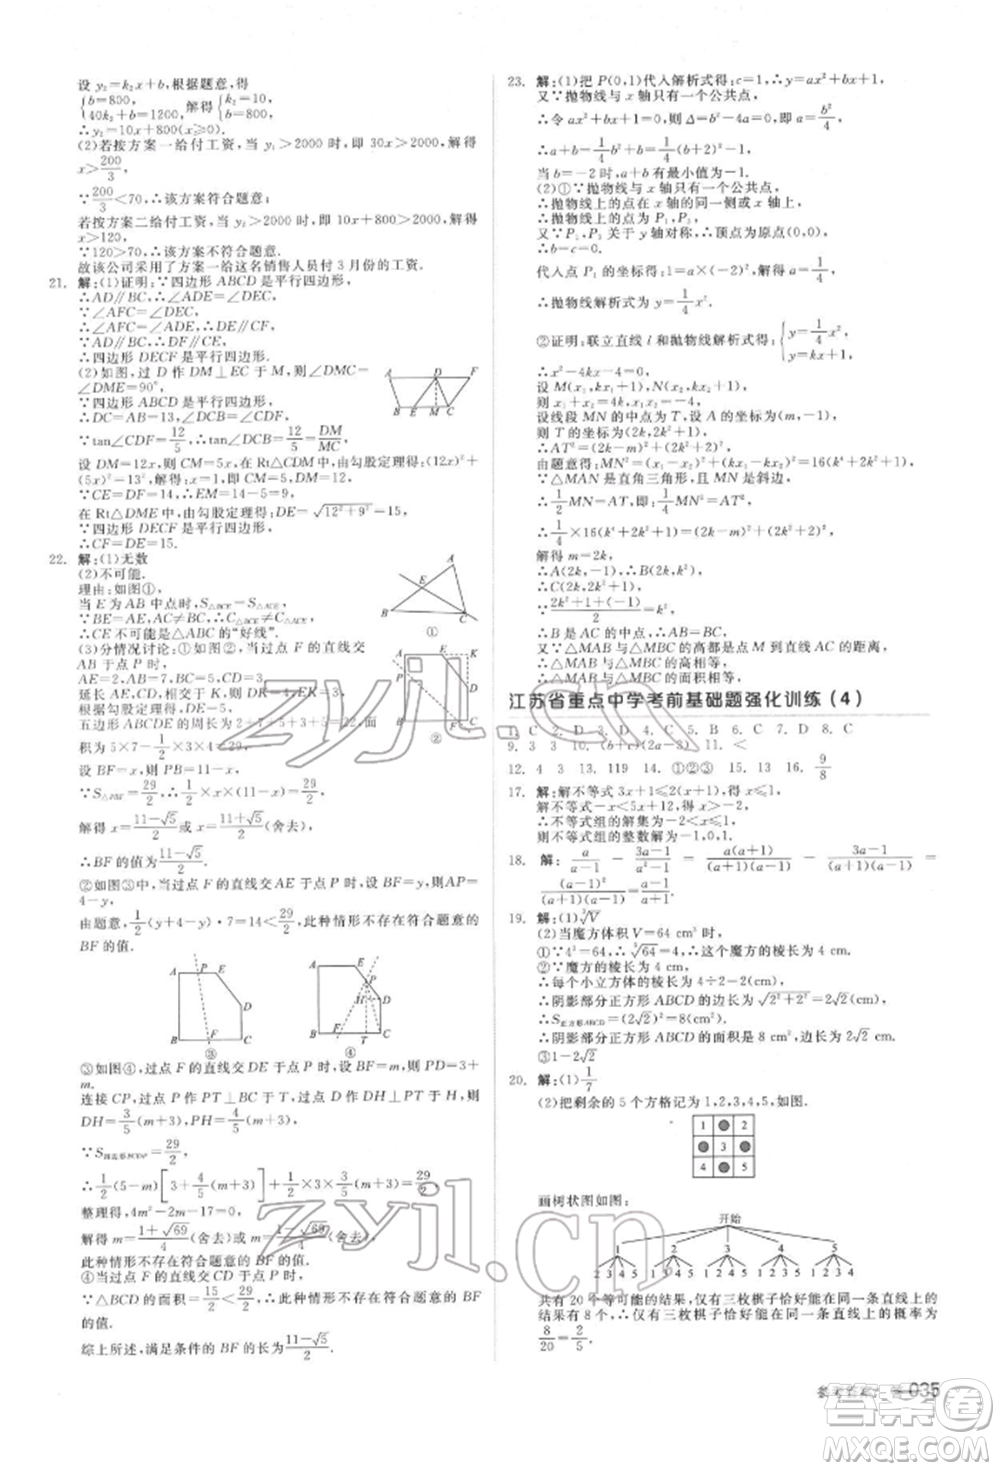 设 y₂=k₂x+b,根据题意,得
{b=800, 40k₂+b=1200, 解得{k₂=10, b=800,
∴y₂=10x+800(x≥0).
(2)若按方案一给付工资,当 y₁>2000 时,即 30x>2000,解得
x>200/3,
∵200/3<70,∴该方案符合题意;
若按方案二给付工资,当 y₂>2000 时,即 10x+800>2000,解得
x>120,
∵120>70,∴该方案不符合题意.
故该公司采用了方案一给这名销售人员付 3 月份的工资.
21. 解:(1)证明:∵四边形 ABCD 是平行四边形,
∴AD∥BC,∴∠ADE=∠DEC,
∵∠AFC=∠DEC,
∴∠AFC=∠ADE,∴DE∥CF,
∴四边形 DECF 是平行四边形.
(2)如图,过 D 作 DM⊥EC 于 M,则∠DMC=
∠DME=90°,
∵四边形 ABCD 是平行四边形,
∴DC=AB=13,∠DCB=∠CDF,
∵tan∠CDF=12/5,∴tan∠DCB=12/5=DM/MC,
设 DM=12x,则 CM=5x,在 Rt△DMC 中,由勾股定理得:(12x)²+
(5x)²=13²,解得 x=1,即 CM=5,DM=12,
∵CE=14,∴EM=14-5=9,
在 Rt△DME 中,由勾股定理得:DE=√(12²+9²)=15,
∵四边形 DECF 是平行四边形,
∴CF=DE=15.
A D F
B E M C
22. 解:(1)无数
(2)不可能.
理由:如图①,
当 E 为 AB 中点时,S△ACE=S△BCE,
∵BE=AE,BC≠AC,∴C△BCE≠C△ACE,
∴CE 不可能是△ABC 的“好线”.
(3)分情况讨论:①如图②,当过点 F 的直线交
AB 于点 P 时,
A E B C
①
②
五边形 ABCDE 的周长为 7+2+5+3+5=22,
积为 5×7-1/2×3×4=29,
设 BF=x,则 PB=11-x,
∵S△PBF=29/2,∴1/2×x×(11-x)=29/2,
解得 x=(11-√5)/2或 x=(11+√5)/2(舍去),
∴BF的值为(11-√5)/2.
②如图③中,当过点 F 的直线交 AE 于点 P 时,设 BF=y,则AP=
4-y,
由题意,1/2(y+4-y)·7=14<29/2,∴此种情形不存在符合题意的
BF 的值.
A P E D B F C
③
A E P H D B F T C
④
③如图④中,当过点 F 的直线交 DE 于点 P 时,设 PD=3+
m.
连接 CP,过点 P 作 PT⊥BC 于 T,过点 D 作 DH⊥PT 于 H,则
DH=3/5(m+3),PH=4/5(m+3),
∵S四边形CDPF=29/2,
∴1/2(5-m)[3+4/5(m+3)]+1/2×3×3/5(m+3)=29/2,
整理得,4m²-2m-17=0,
解得 m=(1+√69)/4(舍去)或 m=(1-√69)/4(舍去),
此种情形不存在符合题意的 BF 的值.
④当过点 F 的直线交 CD 于点 P 时,
∵△BCD 的面积=15/2<29/2,∴此种情形不存在符合题意的 BF
的值.
综上所述,满足条件的 BF 的长为(11-√5)/2.
23. 解:(1)把 P(0,1)代入解析式得:c=1,∴y=ax²+bx+1,
又∵抛物线与 x 轴只有一个公共点,
∴令 ax²+bx+1=0,则 Δ=b²-4a=0,即 a=b²/4,
∴a+b=1/4b²+b=1/4(b+2)²-1,
当 b=-2 时,a+b 有最小值为-1.
(2)①∵抛物线与 x 轴只有一个公共点,
∴抛物线上的点在 x 轴的同一侧或 x 轴上,
∴抛物线上的点为 P₁,P₃,
又∵P₁,P₃ 关于 y 轴对称,∴顶点为原点(0,0),
代入点 P₁ 的坐标得 y=1/4x²,
∴抛物线解析式为 y=1/4x².
②证明:联立直线 l 和抛物线解析式得{y=1/4x², y=kx+1,
∴x²-4kx-4=0,
设 M(x₁,kx₁+1),N(x₂,kx₂+1),
则 x₁+x₂=4k,x₁x₂=-4,
设线段 MN 的中点为 T,设 A 的坐标为(m,-1),
则 T 的坐标为(2k,2k²+1),
∴AT²=(2k-m)²+(2k²+2)²,
由题意得:MN²=(x₁-x₂)²+k²(x₁-x₂)²=16(k²+1)²,
∵△MAN 是直角三角形,且 MN 是斜边,
∴1/2MN=AT,即:1/4MN²=AT²,
∴1/4×16(k²+1)²=(2k-m)²+(2k²+2)²,
解得 m=2k,
∴A(2k,-1),
∴B是 AC 的中点,
∴△MAB 与△MBC 的高都是点 M 到直线 AC 的距离,
∴△MAB 与△MBC 的高相等,
∴△MAB 与△MBC 的面积相等.
江苏省重点中学考前基础题强化训练（4）
1. C 2. D 3. D 4. B 5. C 6. C 7. D 8. C
9. 3 10. (b+c)(2a-3) 11. <
12. 4 3 13. 119 14. ①②③ 15. 13 16. 9/8
17. 解:解不等式 3x+1≤2(x+1),得 x≤1,
解不等式-x<5x+12,得 x>-2,
∴不等式组的解集为-2<x≤1,
则不等式组的整数解为-1,0,1.
18. 解: a/(a-1) - (3a-1)/(a²-1) = a(a+1)/((a+1)(a-1)) - (3a-1)/((a+1)(a-1)) =
(a-1)²/((a+1)(a-1)) = (a-1)/(a+1).
19. 解:(1)∛V
(2)当魔方体积 V=64 cm³ 时,
①∵4³=64,∴∛64=4,∴这个魔方的棱长为 4 cm.
②∵魔方的棱长为 4 cm,
∴每个小立方体的棱长为 4÷2=2(cm),
∴阴影部分正方形 ABCD 的边长为√(2²+2²)=2√2(cm),
∴S正方形ABCD=(2√2)²=8(cm²),
∴阴影部分正方形 ABCD 的面积是 8 cm²,边长为 2√2 cm.
③-1-2√2
20. 解:(1)1/7
(2)把剩余的 5 个方格记为 1,2,3,4,5,如图.
1 2
3
4 5
画树状图如图:
开始
1 2 3 4 5
2 3 4 5 1 3 4 5 1 2 4 5 1 2 3 5 1 2 3 4
共有 20 个等可能的结果,仅有三枚棋子恰好能在同一条直线上的
结果有 8 个,∴仅有三枚棋子恰好能在同一条直线上的概率为
8/20=2/5.
035
zyjl.cn
zyjl.cn
答案圈
MXQE.COM